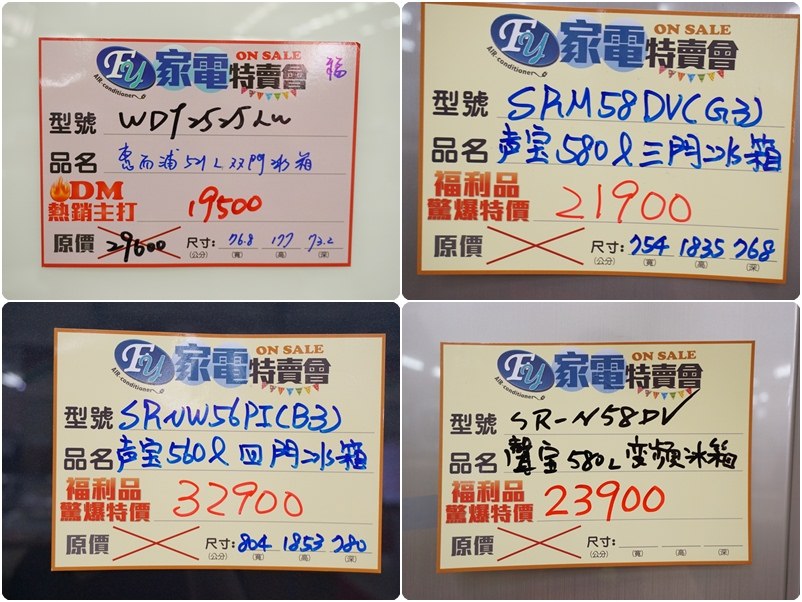 Fy 家電特賣會 ON SALE 福
AIR-conditioner
型號 WD72525LW
品名 惠而浦521L双門冰箱
DM
熱銷主打 19500
原價 29600 尺寸: 76.8 177 73.2
(公分) (寬) (高) (深)
Fy 家電特賣會 ON SALE
AIR-conditioner
型號 SRM58DV(G3)
品名 声宝580l三門冰箱
福利品
驚爆特價 21900
原價 尺寸: 754 1835 768
(公分) (寬) (高) (深)
Fy 家電特賣會 ON SALE
AIR-conditioner
型號 SRNW56PI(B3)
品名 声宝560l四門冰箱
福利品
驚爆特價 32900
原價 尺寸: 804 1853 780
(公分) (寬) (高) (深)
Fy 家電特賣會 ON SALE
AIR-conditioner
型號 SR-N58DV
品名 聲宝580L变頻冰箱
福利品
驚爆特價 23900
原價 尺寸:
(公分) (寬) (高) (深)